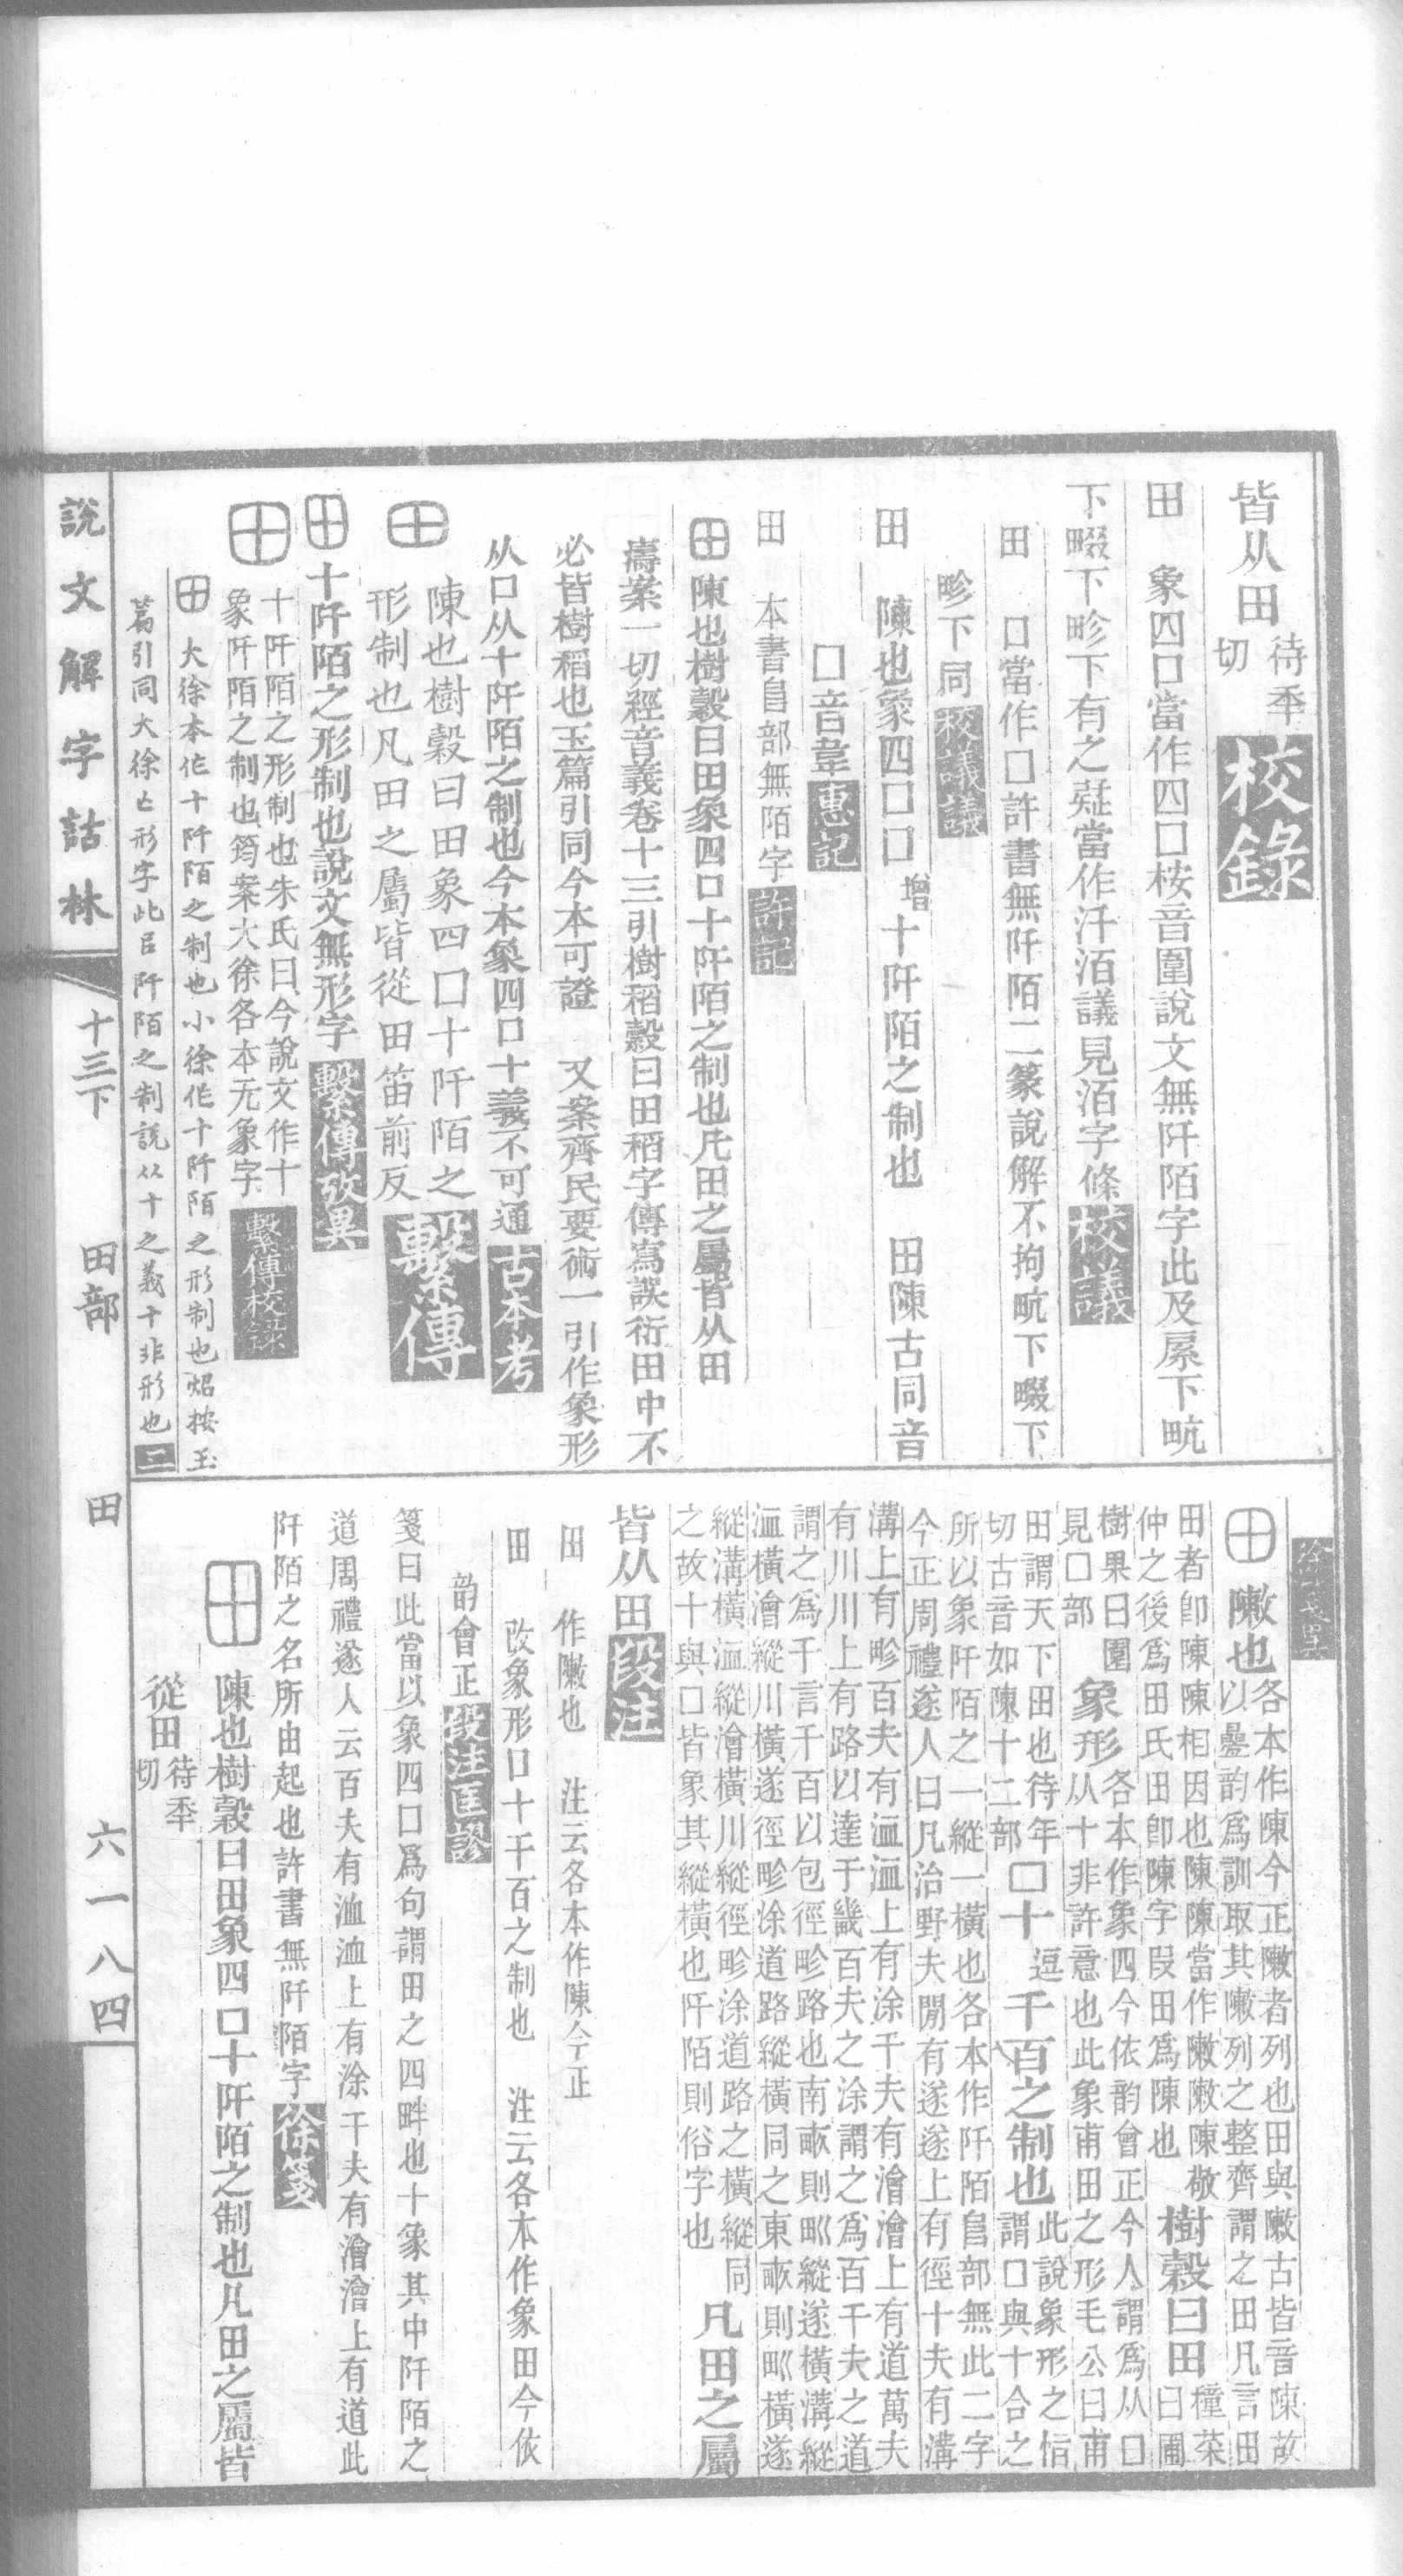 皆从田待秊切校錄
田　象四囗當作四囗桉音圍說文無阡陌字此及㕟下畖
下畷下畛下有之疑當作汘洦議見洦字條校議
田　囗當作囗許書無阡陌二篆說解不拘畖下畷下
畛下同校議議
田　陳也象四囗囗增十阡陌之制也　田陳古同音
囗音韋惠記
田　本書𨸏部無陌字許記
田陳也樹穀曰田象四囗十阡陌之制也凡田之屬皆从田
濤案一切經音義卷十三引樹稻穀曰田稻字傳寫誤衍田中不
必皆樹稻也玉篇引同今本可證　又案齊民要術一引作象形
从口从十阡陌之制也今本象四口十義不可通古本考
田　陳也樹穀曰田象四囗十阡陌之
形制也凡田之屬皆從田笛前反繫傳
田十阡陌之形制也說文無形字繫傳攷異
田十阡陌之形制也朱氏曰今說文作十
象阡陌之制也筠案大徐各本无象字繫傳校錄
田　大徐本作十阡陌之制也小徐作十阡陌之形制也炤按玉
篇引同大徐亡形字此㠯阡陌之制説从十之義十非形也二
田　敶也各本作陳今正敶者列也田與敶古皆音陳故
以疊韵爲訓取其敶列之整齊謂之田凡言田
田者卽陳陳相因也陳陳當作敶敶陳敬
仲之後爲田氏田卽陳字叚田爲陳也樹穀曰田種菜曰圃
樹果曰園
見囗部象形各本作象四今依韵會正今人謂爲从囗
从十非許意也此象甫田之形毛公曰甫
田謂天下田也待年
切古音如陳十二部囗十逗千百之制也此說象形之恉
謂囗與十合之
所以象阡陌之一縱一橫也各本作阡陌𨸏部無此二字
今正周禮遂人曰凡治野夫閒有遂遂上有徑十夫有溝
溝上有畛百夫有洫洫上有涂千夫有澮澮上有道萬夫
有川川上有路以達于畿百夫之涂謂之爲百千夫之道
謂之爲千言千百以包徑畛路也南畝則畎縱遂橫溝縱
洫橫澮縱川橫遂徑畛涂道路縱橫同之東畝則畎橫遂
縱溝橫洫縱澮橫川縱徑畛涂道路之橫縱同
之故十與囗皆象其縱橫也阡陌則俗字也凡田之屬
皆从田段注
田　作敶也　注云各本作陳今正
田　改象形囗十千百之制也　注云各本作象田今依
韵會正段注匡謬
箋曰此當以象四囗爲句謂田之四畔也十象其中阡陌之
道周禮遂人云百夫有洫洫上有涂千夫有澮澮上有道此
阡陌之名所由起也許書無阡陌字徐箋
田　陳也樹穀曰田象四囗十阡陌之制也凡田之屬皆
從田待秊切
說文解字詁林　十三下　田部　田　六一八四